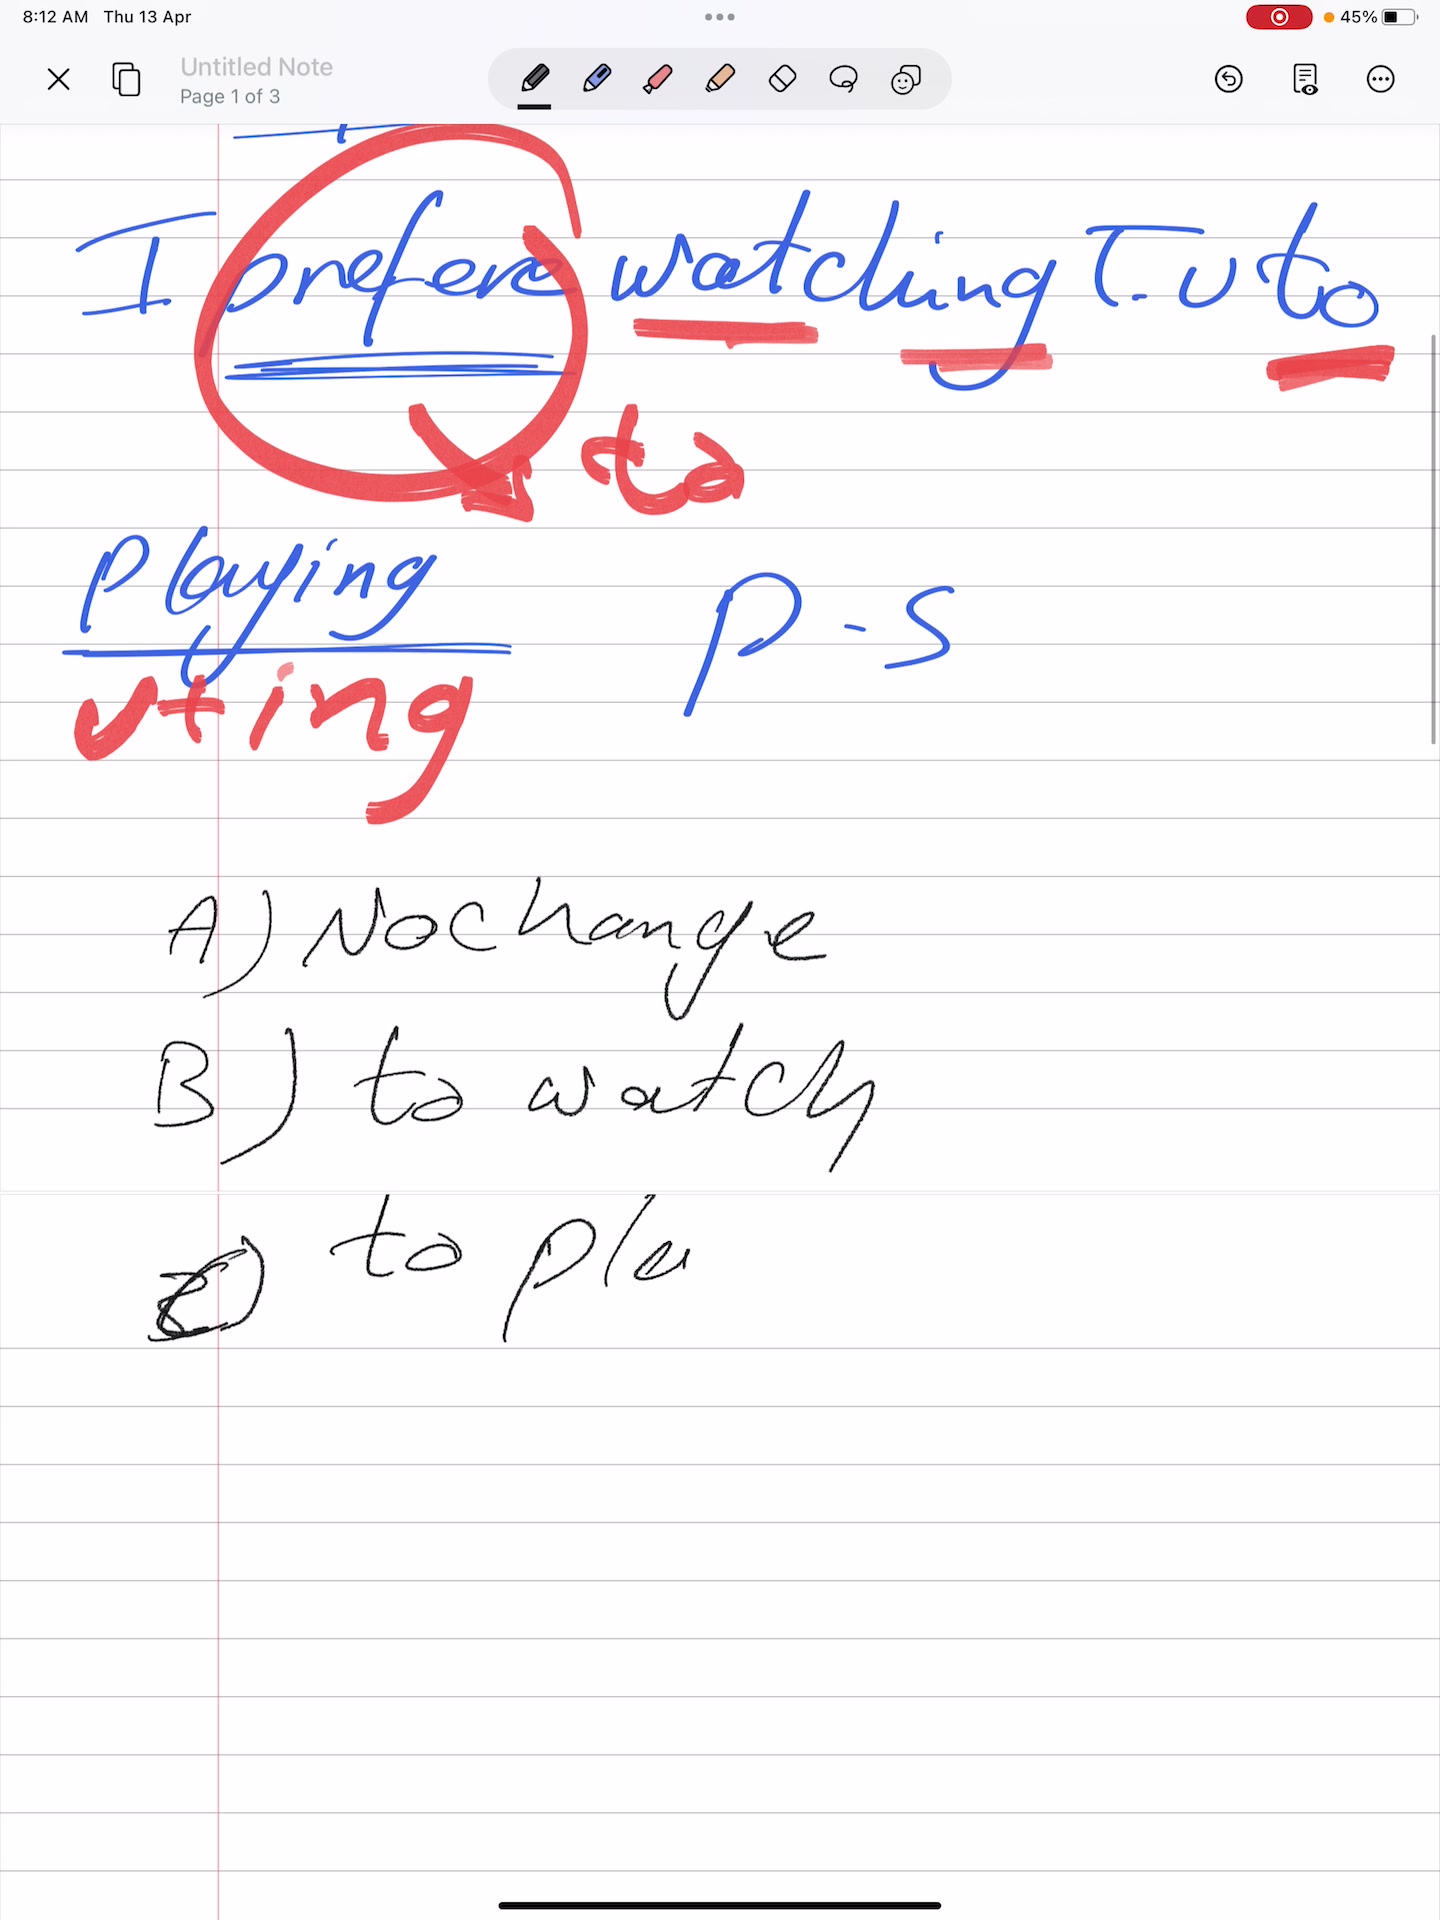 8:12 AM Thu 13 Apr 45%
Untitled Note
Page 1 of 3
I prefere watching T.v to
to
playing
v+ing
P-S
A) No change
B) to watch
C) to pla